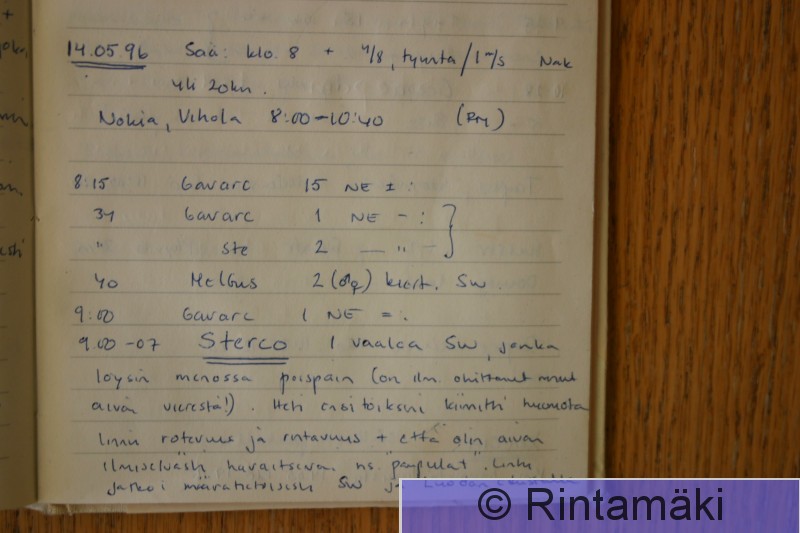 14.05.96 Sää: klo. 8 + 4/8, tyyntä/1 m/s Näk
yli 20km.
Nokia, Vihola 8:00-10:40 (RM)
8:15 Gavarc 15 NE ± :
34 Gavarc 1 NE - : }
" Ste 2 — " —
40 MelGus 2 (♂♀) kiert. SW.
9:00 Gavarc 1 NE = :
9.00-07 Sterco 1 vaalea SW, jonka
löysin menossa poispäin (on ilm. ohittanut minut
aivan vierestä!). Heti ensitöikseni kiinnitti huomiota
linnun rotevuus ja rintavuus + että olin aivan
ilmiselvästi havaitsevan ns. "pampulat". Lintu
jatkoi määrätietoisesti SW
© Rintamäki